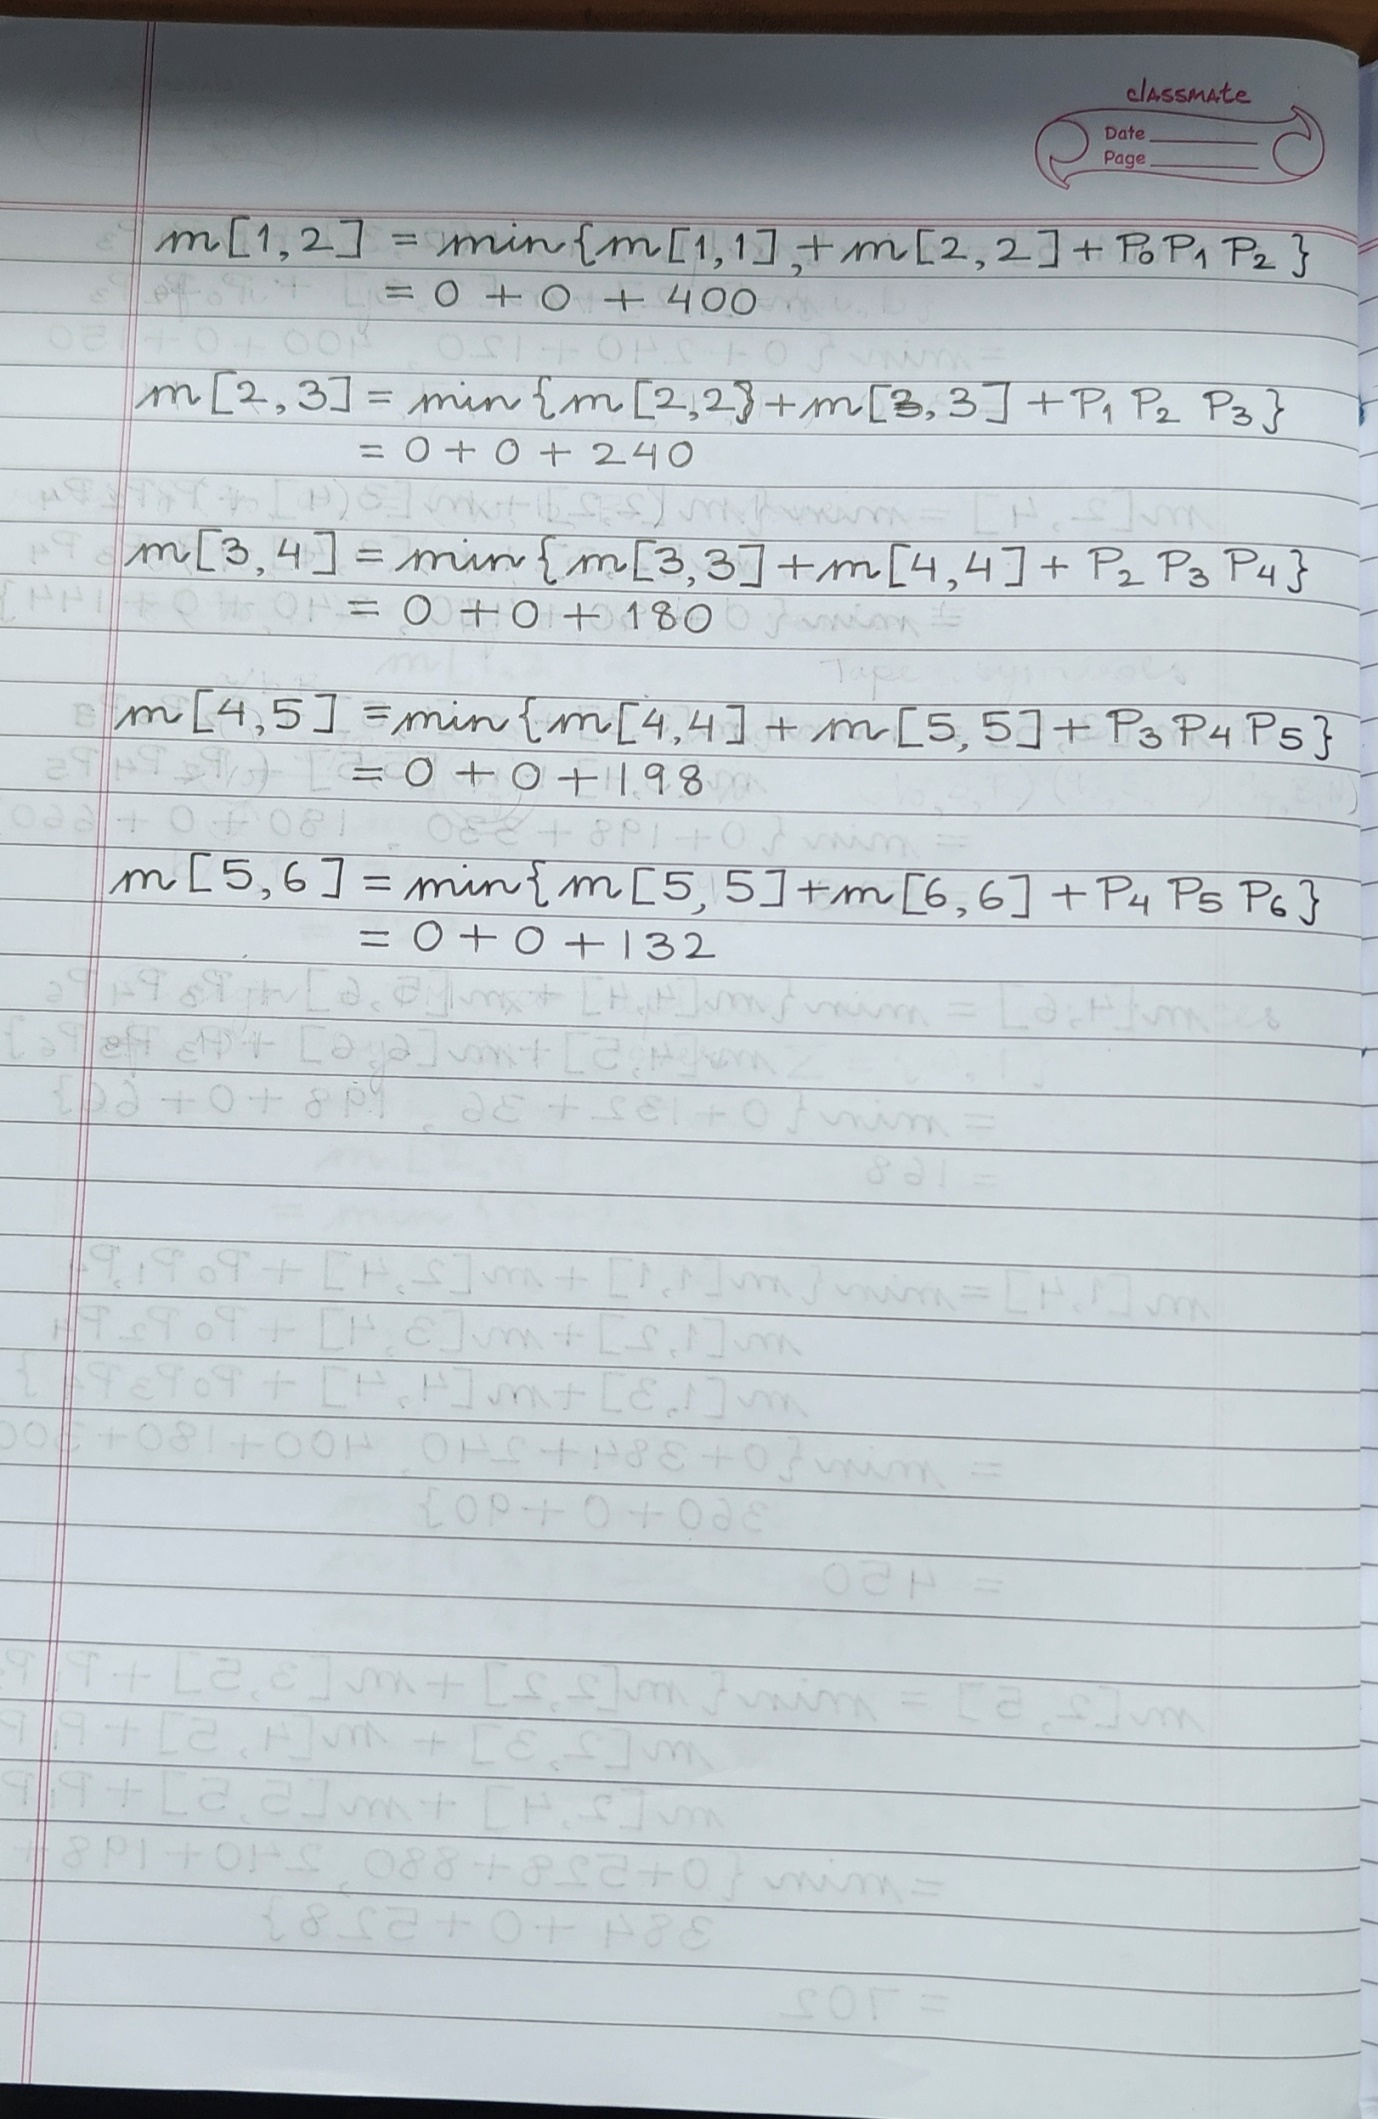 classmate
Date
Page
m[1,2] = min{m[1,1],+m[2,2]+P₀P₁P₂}
= 0+0+400
m[2,3] = min{m[2,2}+m[3,3]+P₁P₂P₃}
= 0+0+240
m[3,4] = min{m[3,3]+m[4,4]+P₂P₃P₄}
= 0+0+180
m[4,5] = min{m[4,4]+m[5,5]+P₃P₄P₅}
= 0+0+198
m[5,6] = min{m[5,5]+m[6,6]+P₄P₅P₆}
= 0+0+132